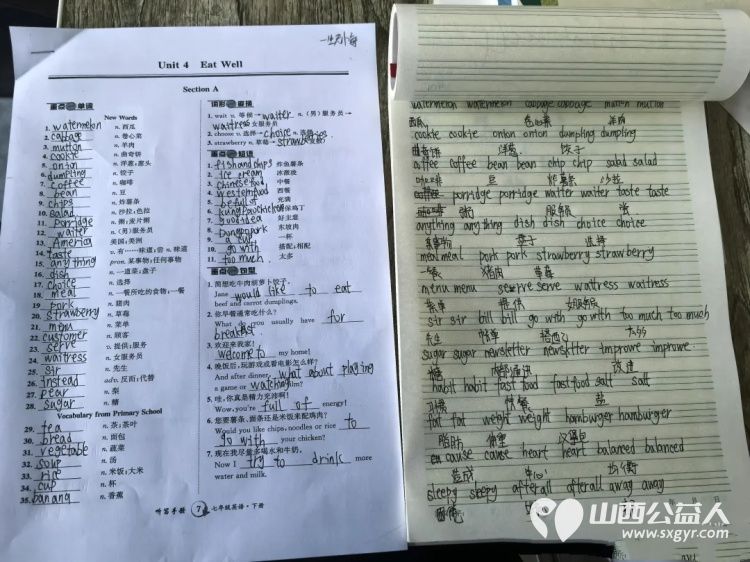 Unit 4 Eat Well
Section A
重点 单词
New Words
1. watermelon n. 西瓜
2. cabbage n. 卷心菜
3. mutton n. 羊肉
4. cookie n. 曲奇饼
5. onion n. 洋葱;葱头
6. dumpling n. 饺子
7. coffee n. 咖啡
8. bean n. 豆
9. chips n. 炸薯条
10. salad n. 沙拉;色拉
11. porridge n. 粥;麦片粥
12. waiter n. (男)服务员
13. America 美国;美洲
14. taste v. 有……味道;尝 n. 味道
15. anything pron. 某事物;任何事物
16. dish n. 一道菜;盘子
17. choice n. 选择
18. meal n. 一餐所吃的食物;一餐
19. pork n. 猪肉
20. strawberry n. 草莓
21. menu n. 菜单
22. customer n. 顾客
23. serve v. 提供;服务
24. waitress n. 女服务员
25. sir n. 先生
26. instead adv. 反而;代替
27. pear n. 梨
28. sugar n. 糖
Vocabulary from Primary School
29. tea n. 茶;茶叶
30. bread n. 面包
31. vegetable n. 蔬菜
32. soup n. 汤
33. rice n. 米饭;大米
34. cup n. 杯
35. banana n. 香蕉
词形 变换
1. wait v. 等候→ waiter n. (男)服务员→
waitress 女服务员
2. choose v. 选择→ choice n. 选择
3. strawberry n. 草莓→ strawberries
重点 短语
1. fish and chips 炸鱼薯条
2. ice cream 冰激凌
3. Chinese food 中餐
4. western food 西餐
5. be full of 充满
6. kung Pao chicken 宫保鸡丁
7. good idea 好主意
8. Dongpo pork 东坡肉
9. a cup 一杯
10. go with 搭配;相配
11. too much 太多
重点 句型
1. 简想吃牛肉胡萝卜饺子。
Jane would like to eat
beef and carrot dumplings.
2. 你早餐通常吃什么?
What do you usually have for
breakfast
3. 欢迎来我家!
Welcome to my home!
4. 晚饭后,玩游戏或看电影怎么样?
And after dinner, what about playing
a game or watching film?
5. 哇,你真是精力充沛啊!
Wow, you're full of energy!
6. 您要薯条、面条还是米饭来配鸡肉?
Would you like chips, noodles or rice to
go with your chicken?
7. 现在我尽量多喝水和牛奶。
Now I try to drinks more
water and milk.
听写手册 7 七年级英语·下册
watermelon watermelon cabbage cabbage mutton mutton
西瓜 卷心菜 羊肉
cookie cookie onion onion dumpling dumpling
曲奇饼 洋葱 饺子
coffee bean bean chip chip salad salad
咖啡 豆 炸薯条 沙拉
porridge porridge waiter waiter taste taste
粥 服务员 尝
anything anything dish dish choice choice
某事物 盘子 选择
meal meal pork pork strawberry strawberry
一餐 猪肉 草莓
menu menu serve waitress waitress
菜单 提供 女服务员
sir sir bill bill go with go with too much too much
先生 账单 太多
sugar sugar newsletter newsletter improve improve
糖 改进
habit habit fast food fast food salt salt
习惯 快餐 盐
fat fat weight weight hamburger hamburger
脂肪 汉堡包
cause cause heart heart balanced balanced
造成 心 均衡
sleepy sleepy after all after all away away
山西公益人
www.sxgyr.com